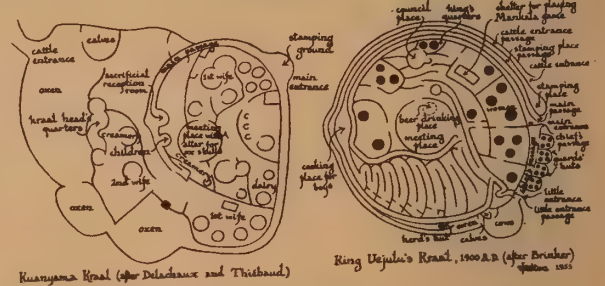 cattle
entrance
calves
oxen
sacrificial
reception
room
main passage
kraal head's
quarters
creamery
children
2nd wife
oxen
oxen
1st wife
meeting
place with
altar for
ox skulls
creamery
dairy
1st wife
stamping
ground
main
entrance
Kuanyama Kraal (after Delachaux and Thiébaud)
council
place
king's
quarters
shelter for playing
Mankala game
cattle entrance
passage
stamping place
passage
cattle entrance
stamping
place
main
passage
main
entrance
chief's
passage
guards'
huts
little
entrance
little entrance
passage
women
beer drinking
place
meeting
place
cooking
place for
boys
herd's hut
oxen
calves
cows
King Uejulu's Kraal, 1900 A.D. (after Brinker)
1955